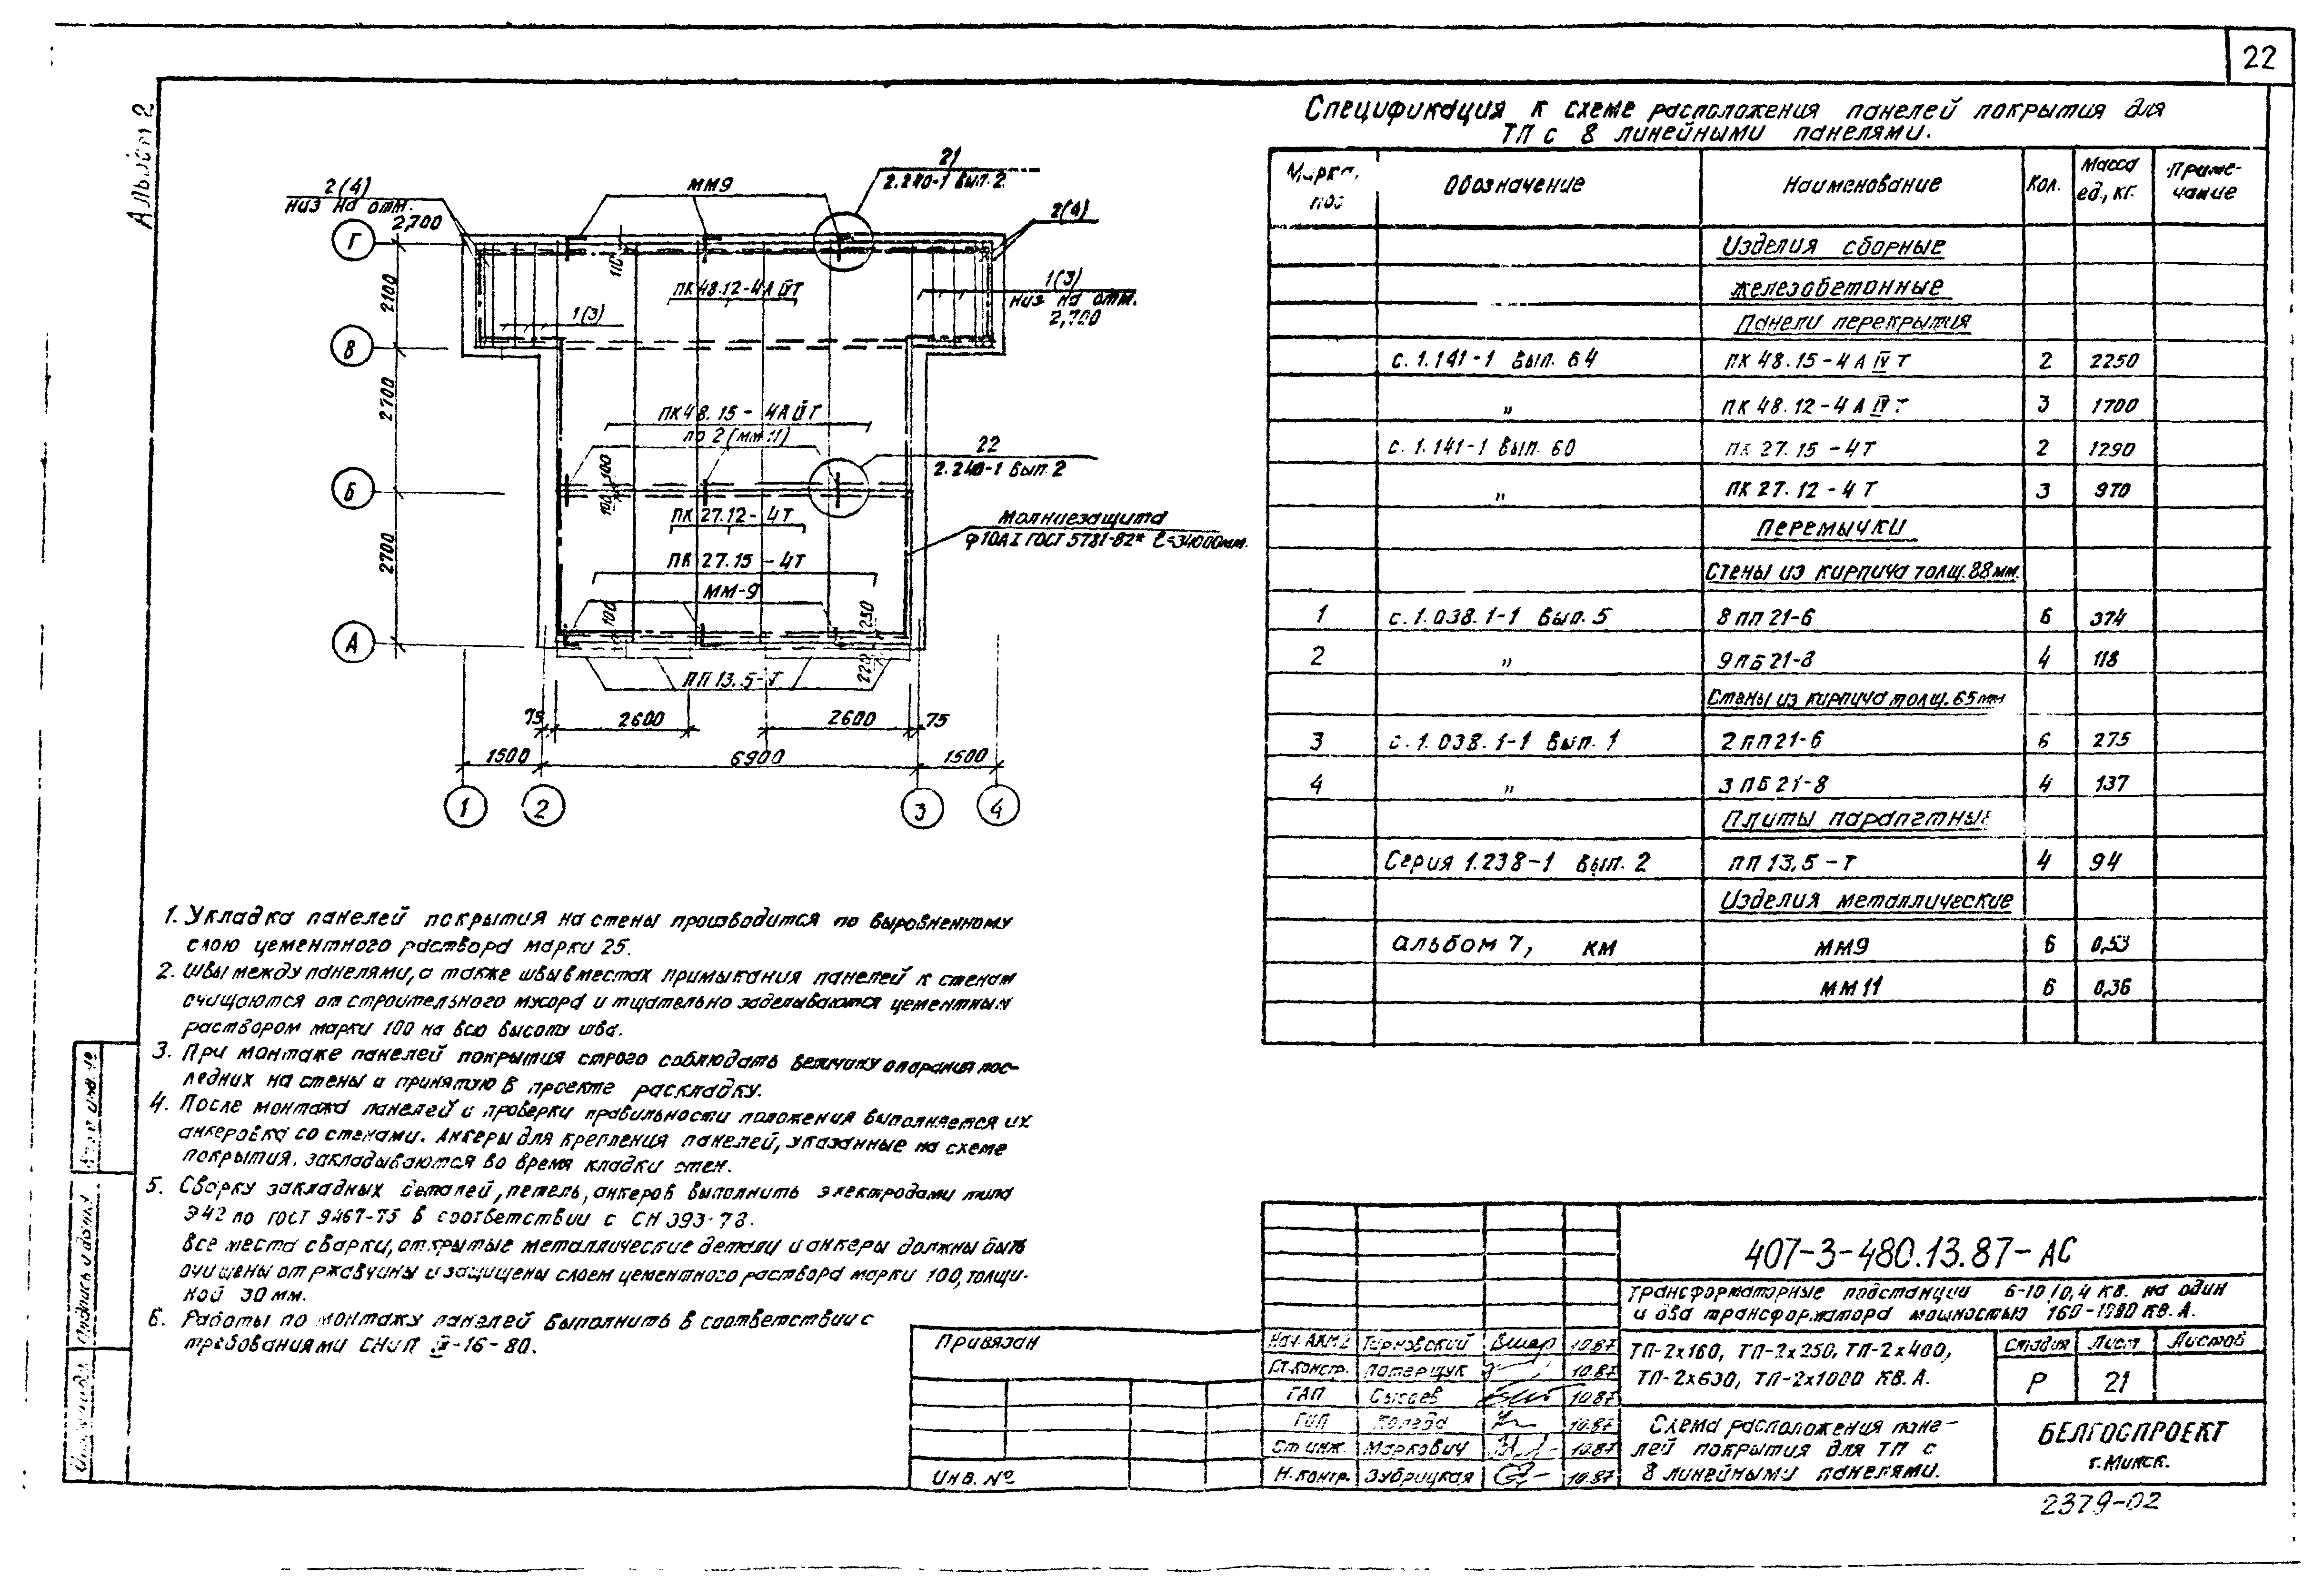 22
Альбом 2
2(4)
низ на отм.
2,700
ММ9
21
2.240-1 Вып. 2
2(4)
Г
110
ПК 48.12-4А IV Т
1(3)
низ на отм.
2,700
2100
1(3)
В
2700
ПК 48.15-4А IV Т
по 2 (мм 11)
22
2.240-1 Вып. 2
100 100
Б
ПК 27.12-4Т
Молниезащита
φ10АI ГОСТ 5781-82* ℓ=34000мм.
2700
ПК 27.15-4Т
ММ-9
100
250
А
220
ПП 13.5-Т
75 2600 2600 75
1500 6900 1500
1 2 3 4
Спецификация к схеме расположения панелей покрытия для
ТП с 8 линейными панелями.
Марка, поз Обозначение Наименование Кол. Масса ед., кг. Примечание
Изделия сборные
железобетонные
Панели перекрытия
с. 1.141-1 Вып. 64 ПК 48.15-4А IV Т 2 2250
" ПК 48.12-4А IV Т 3 1700
с. 1.141-1 Вып. 60 ПК 27.15-4Т 2 1290
" ПК 27.12-4Т 3 970
Перемычки
Стены из кирпича толщ. 88мм.
1 с. 1.038.1-1 Вып. 5 8ПП21-6 6 374
2 " 9ПБ21-8 4 118
Стены из кирпича толщ. 65мм
3 с. 1.038.1-1 Вып. 1 2ПП21-6 6 275
4 " 3ПБ21-8 4 137
Плиты парапетные
Серия 1.238-1 Вып. 2 ПП 13,5-Т 4 94
Изделия металлические
альбом 7, КМ ММ9 6 0,53
ММ11 6 0,36
1. Укладка панелей покрытия на стены производится по выровненному
слою цементного раствора марки 25.
2. Швы между панелями, а также швы в местах примыкания панелей к стенам
очищаются от строительного мусора и тщательно заделываются цементным
раствором марки 100 на всю высоту шва.
3. При монтаже панелей покрытия строго соблюдать величину опирания пос-
ледних на стены и принятую в проекте раскладку.
4. После монтажа панелей и проверки правильности положения выполняется их
анкеровка со стенами. Анкеры для крепления панелей, указанные на схеме
покрытия, закладываются во время кладки стен.
5. Сварку закладных деталей, петель, анкеров выполнить электродами типа
Э42 по ГОСТ 9467-75 в соответствии с СН 393-78.
Все места сварки, открытые металлические детали и анкеры должны быть
очищены от ржавчины и защищены слоем цементного раствора марки 100, толщи-
ной 30 мм.
6. Работы по монтажу панелей выполнить в соответствии с
требованиями СНиП III-16-80.
Подпись и дата
Привязан
Инв. №
Нач. АКМ2 Терновский 10.87
Гл. констр. Патерщук 10.87
ГАП Сысоев 10.87
ГИП Коледа 10.87
Ст. инж. Маркович 10.87
Н. контр. Зубрицкая 10.87
407-3-480.13.87-АС
Трансформаторные подстанции 6-10/0,4 кв. на один
и два трансформатора мощностью 160-1000 кв.А.
ТП-2х160, ТП-2х250, ТП-2х400,
ТП-2х630, ТП-2х1000 кв.А.
Стадия Лист Листов
Р 21
Схема расположения пане-
лей покрытия для ТП с
8 линейными панелями.
БЕЛГОСПРОЕКТ
г. Минск.
2379-02